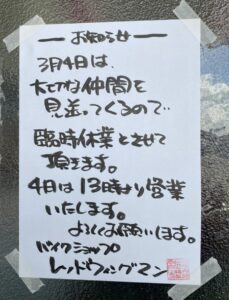 ーお知らせー
3月4日は、
大切な仲間を
見送ってくるので…
臨時休業とさせて
頂きます。
4日は13時より営業
いたします。
よろしくお願いします。
バイクショップ
レッドウィングマン